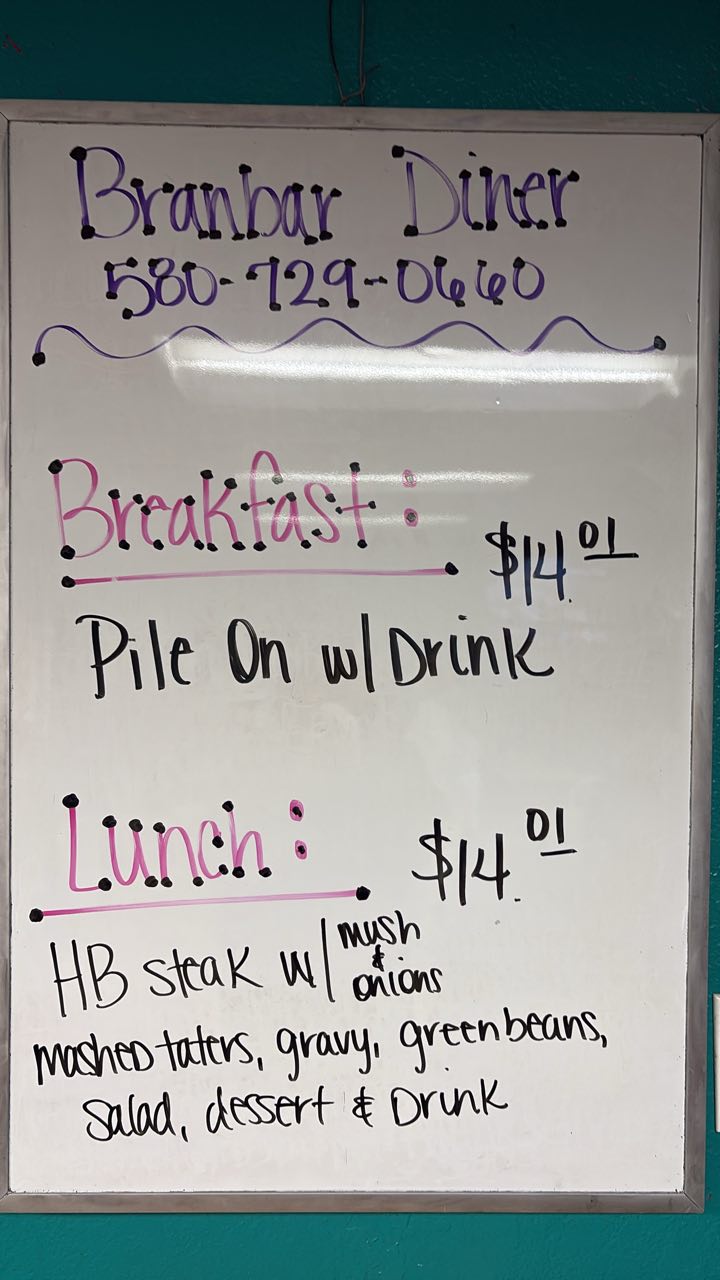 Branbar Diner
580-729-0660
Breakfast:
$14.01
Pile On w/ Drink
Lunch:
$14.01
HB steak w/ mush & onions
mashed taters, gravy, green beans,
salad, dessert & Drink